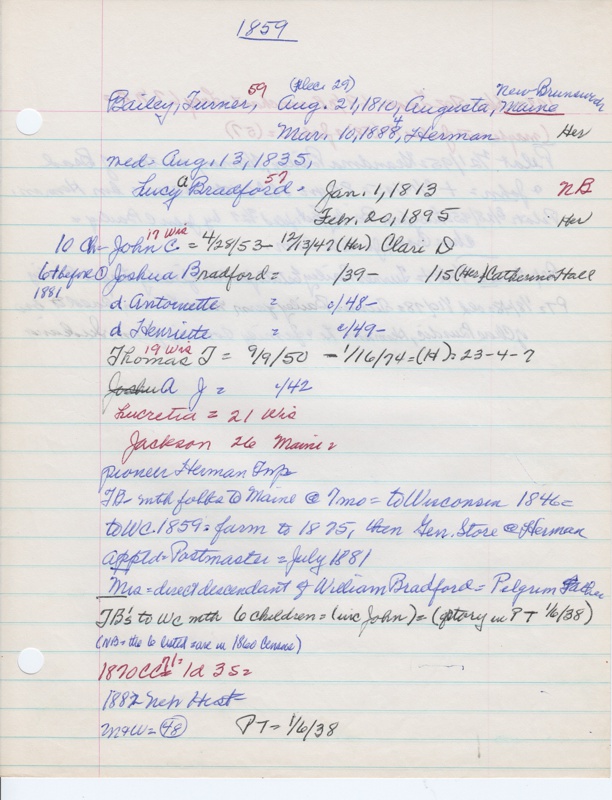 1859
59 (Dec. 29) New Brunswick
Bailey, Turner, Aug. 21, 1810, Augusta, Maine
Mar. 10, 1888, 4 Herman Her
med. Aug. 13, 1835,
Lucy A Bradford = 57 Jan. 1, 1813 NB
Febr. 20, 1895 Her
10 Ch = John C. 17 Wis = 4/28/53 - 12/13/47 (Her) Clari D
6 + before @ Joshua Bradford = /39 - /15 (Her) Catherine Hall
1881
d Antoinette = c/48-
d Henriette = c/49-
Thomas T 19 Wis = 9/9/50 - 1/16/74 = (H) = 23-4-7
A J = c/42
Lucretia = 21 Wis
Jackson 26 Maine =
pioneer Herman Twp
TB - with folks to Maine @ 7mo = to Wisconsin 1846 =
to WC. 1859 = farm to 1875, then Gen. Store @ Herman
apptd = Postmaster = July 1881
Mrs = direct descendant of William Bradford = Pelgrim Father
TB's to WC with 6 children = (inc John) = (story in PT 1/6/38)
(NB = the 6 listed = are in 1860 Census)
1870 CC = 71 = 1d 3s =
1882 Nep Hist =
M+W = 48 PT = 1/6/38